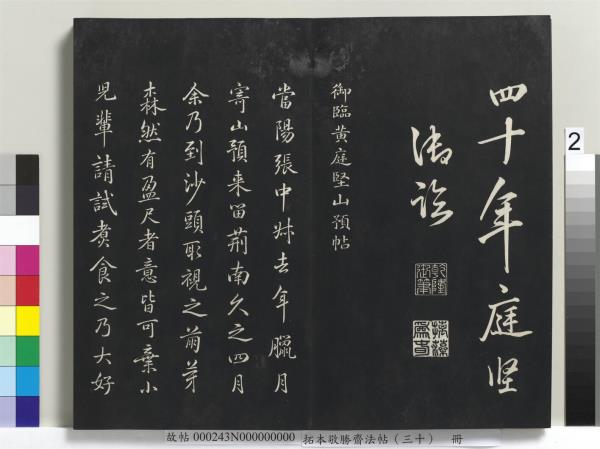 四十年庭堅
御臨
乾隆御筆
御臨黃庭堅山預帖
當陽張中叔去年臘月
寄山預來留荊南久之四月
余乃到沙頭取視之萌芽
森然有盈尺者意皆可棄小
兒輩請試煮食之乃大好
2
故帖 000243N000000000
拓本敬勝齋法帖（三十） 冊